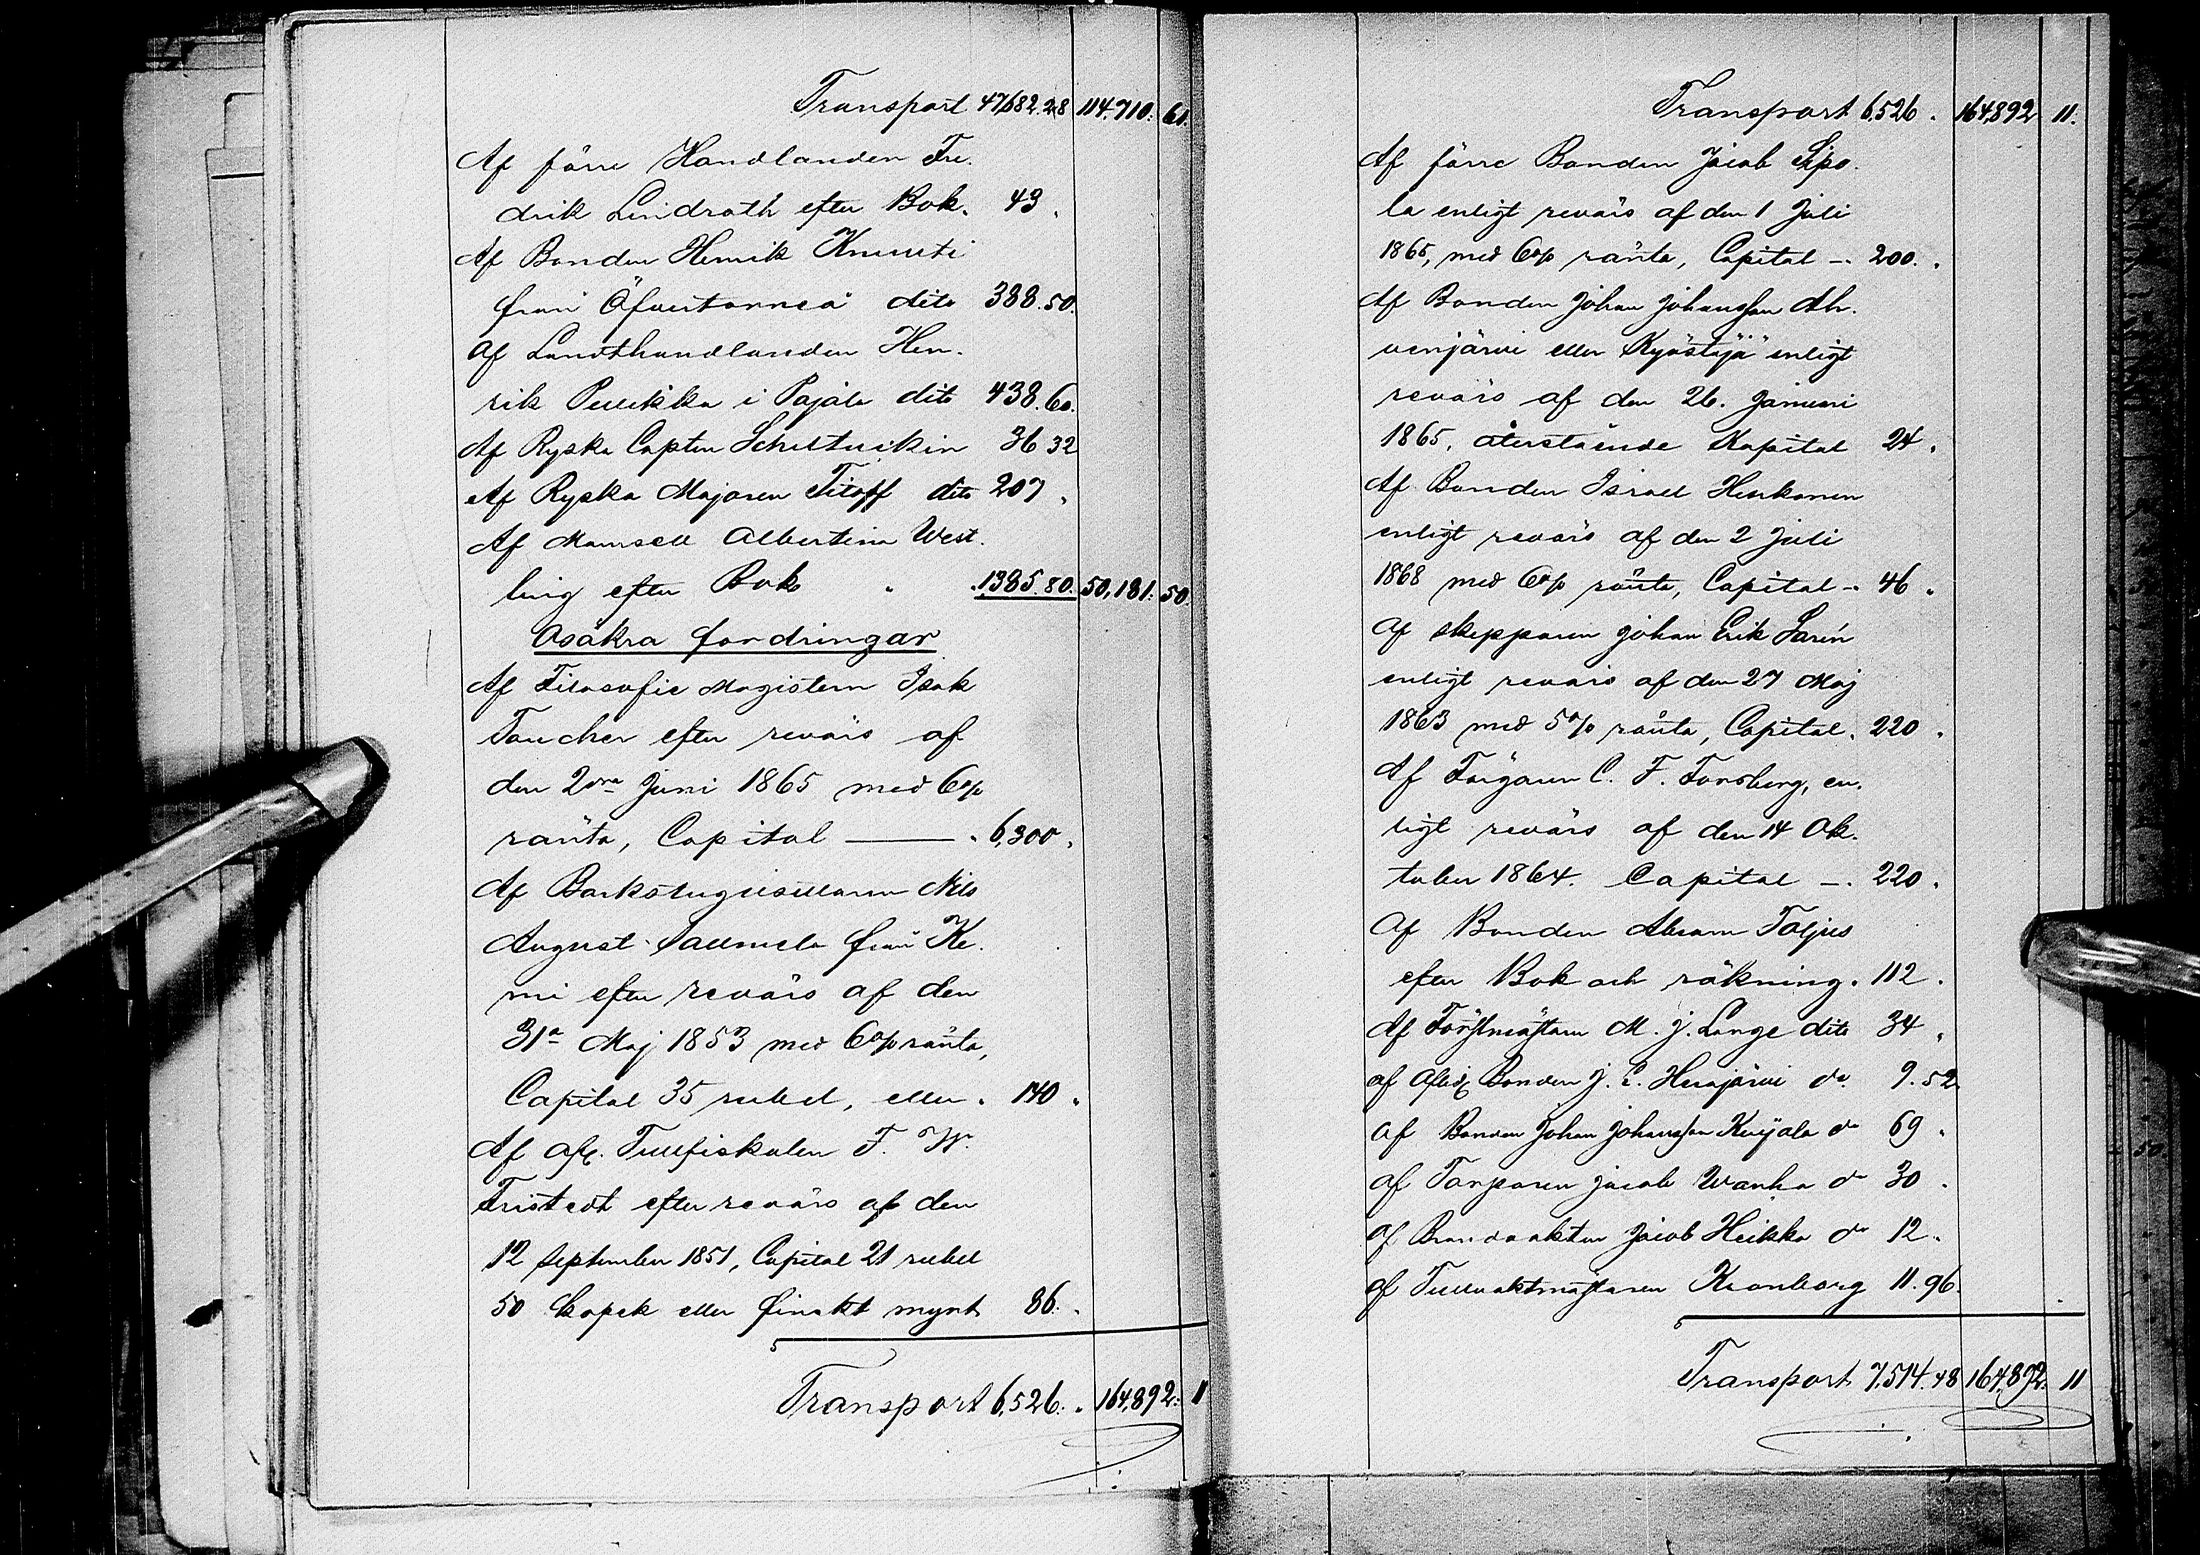 Transport 47,682.28 114.710: 61.
Af förre Handlanden Fre.
drik Lindroth efter Bok. 43.
Af Bonden Henrik Knuuti
från Öfvertorneå dito 388.50.
af Landthandlanden Hen.
rik Pulikka i Pajala dito 438.60.
Af Ryska Capten 36 32
Af Ryska Majoren Titoff dito 207.
Af Mamsell Albertina West.
ling efter Bok . .1385.80. 50,181: 50.
Osäkra fordringar
Af Filosofie Magistern Isak
Fancher efter revärs af
den 2dra Juni 1865 med 6%
ränta, Capital — . 6,300.
Af Barkstuguisittaren Nils
August Saumela från Ke.
mi efter revärs af den
31a Maj 1853 med 6% ränta,
Capital 35 rubel, eller . 140.
Af afl. Tullfiskalen F. W.
Fristedt efter revärs af den
12 September 1851, Capital 21 rubel
50 kopek eller finskt mynt 86:.
Transport 6,526:. 164,892: 11
Transport 6,526. 164,892 11.
Af förre Bonden Jacob Sipo.
la enligt revärs af den 1 Juli
1865, med 6% ränta, Capital -. 200..
Af Bonden Johan Johansson Ah.
venjärvi eller Kyöstäjä enligt
revärs af den 26. Januari
1865. återstående Kapital 24.
Af Bonden Israel Heskonen
enligt revärs af den 2 Juli
1868 med 6% ränta, Capital -. 46.
af skepparen Johan Erik Sarén
enligt revärs af den 27 Maj
1863 med 5% ränta, Capital. 220.
Af Färgaren C. F. Forsberg, en.
ligt revärs af den 14 Ok.
tober 1864. Capital -. 220.
Af Bonden Abram Taljus
efter Bok och räkning. 112.
Af Forstmästaren M. J. Lange dito 34.
af Aflidne Bonden J. E. Herajärvi do. 9.52
af Bonden Johan Johansson Kurjala do 69.
af Torparen Jacob Wanha do 30.
af Jacob Heikka do 12.
af Tullvaktmästaren Kronborg 11.96.
Transport 7,514.48 164,892: 11